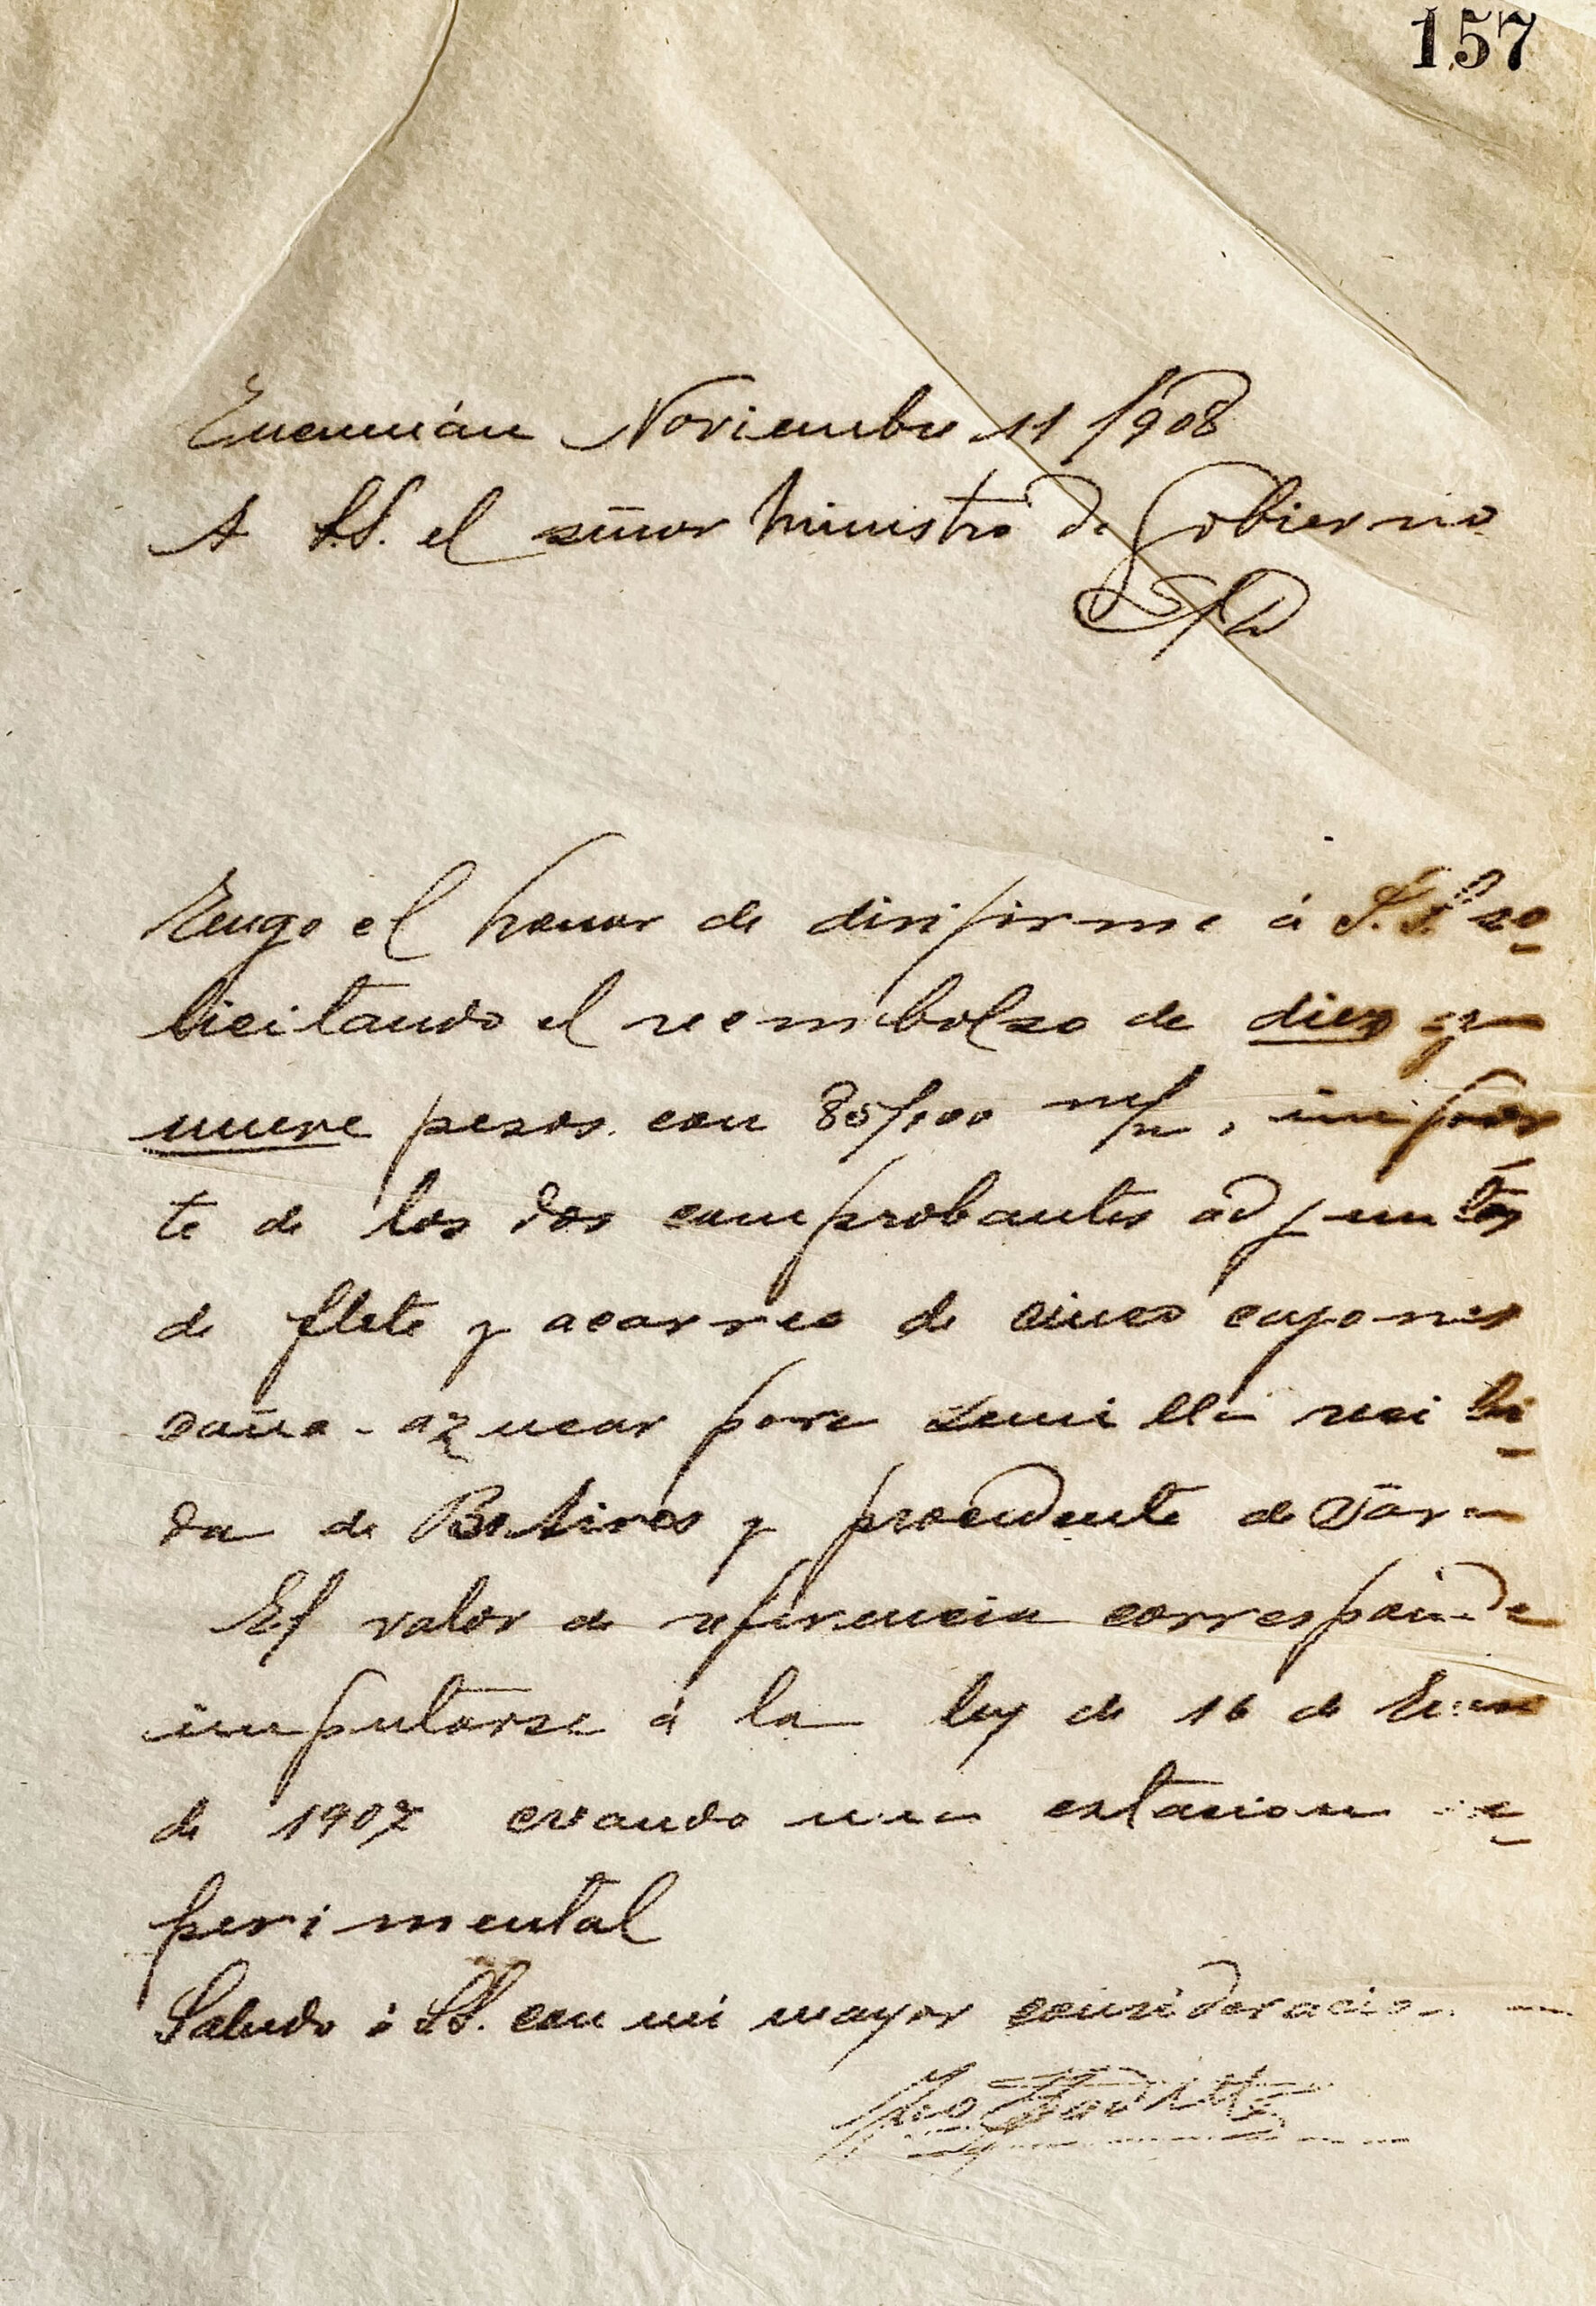 157
Tucumán Noviembre 11/908
A S.S. el señor Ministro de Gobierno
S/D
Tengo el honor de dirijirme á S.Sª so
licitando el reembolso de diez y
nueve pesos con 85/100 m/n, impor
te de los dos comprobantes adjuntos
de flete y acarreo de cinco cajones
caña-azucar para semilla reci bi
da de Bs Aires y procedente de Java
El valor de referencia corresponde
imputarse á la ley de 16 de Enero
de 1907 creando una estacion ex
perimental
Saludo á S.S. con mi mayor consideracion